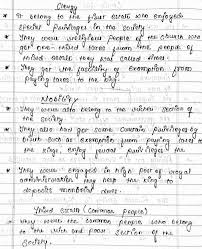 Clergy
* It belong to the first estate who enjoyed
special privileges in the society.
* They were religious people of the church who
get one-third taxes from the people of
third estate they was called tithes.
* They get the facility of exemption from
paying taxes to the king.
Nobility
* They were also belong to the richer section of
the society.
* They also had got some certain privileges by
birth such as exemption from paying taxes to
the king, enjoy feudal privileges
* They were engaged in high post of royal
administration help the king to
Third estate (Common people)
* They were the common people who belong
to the rich and poor section of the
society.